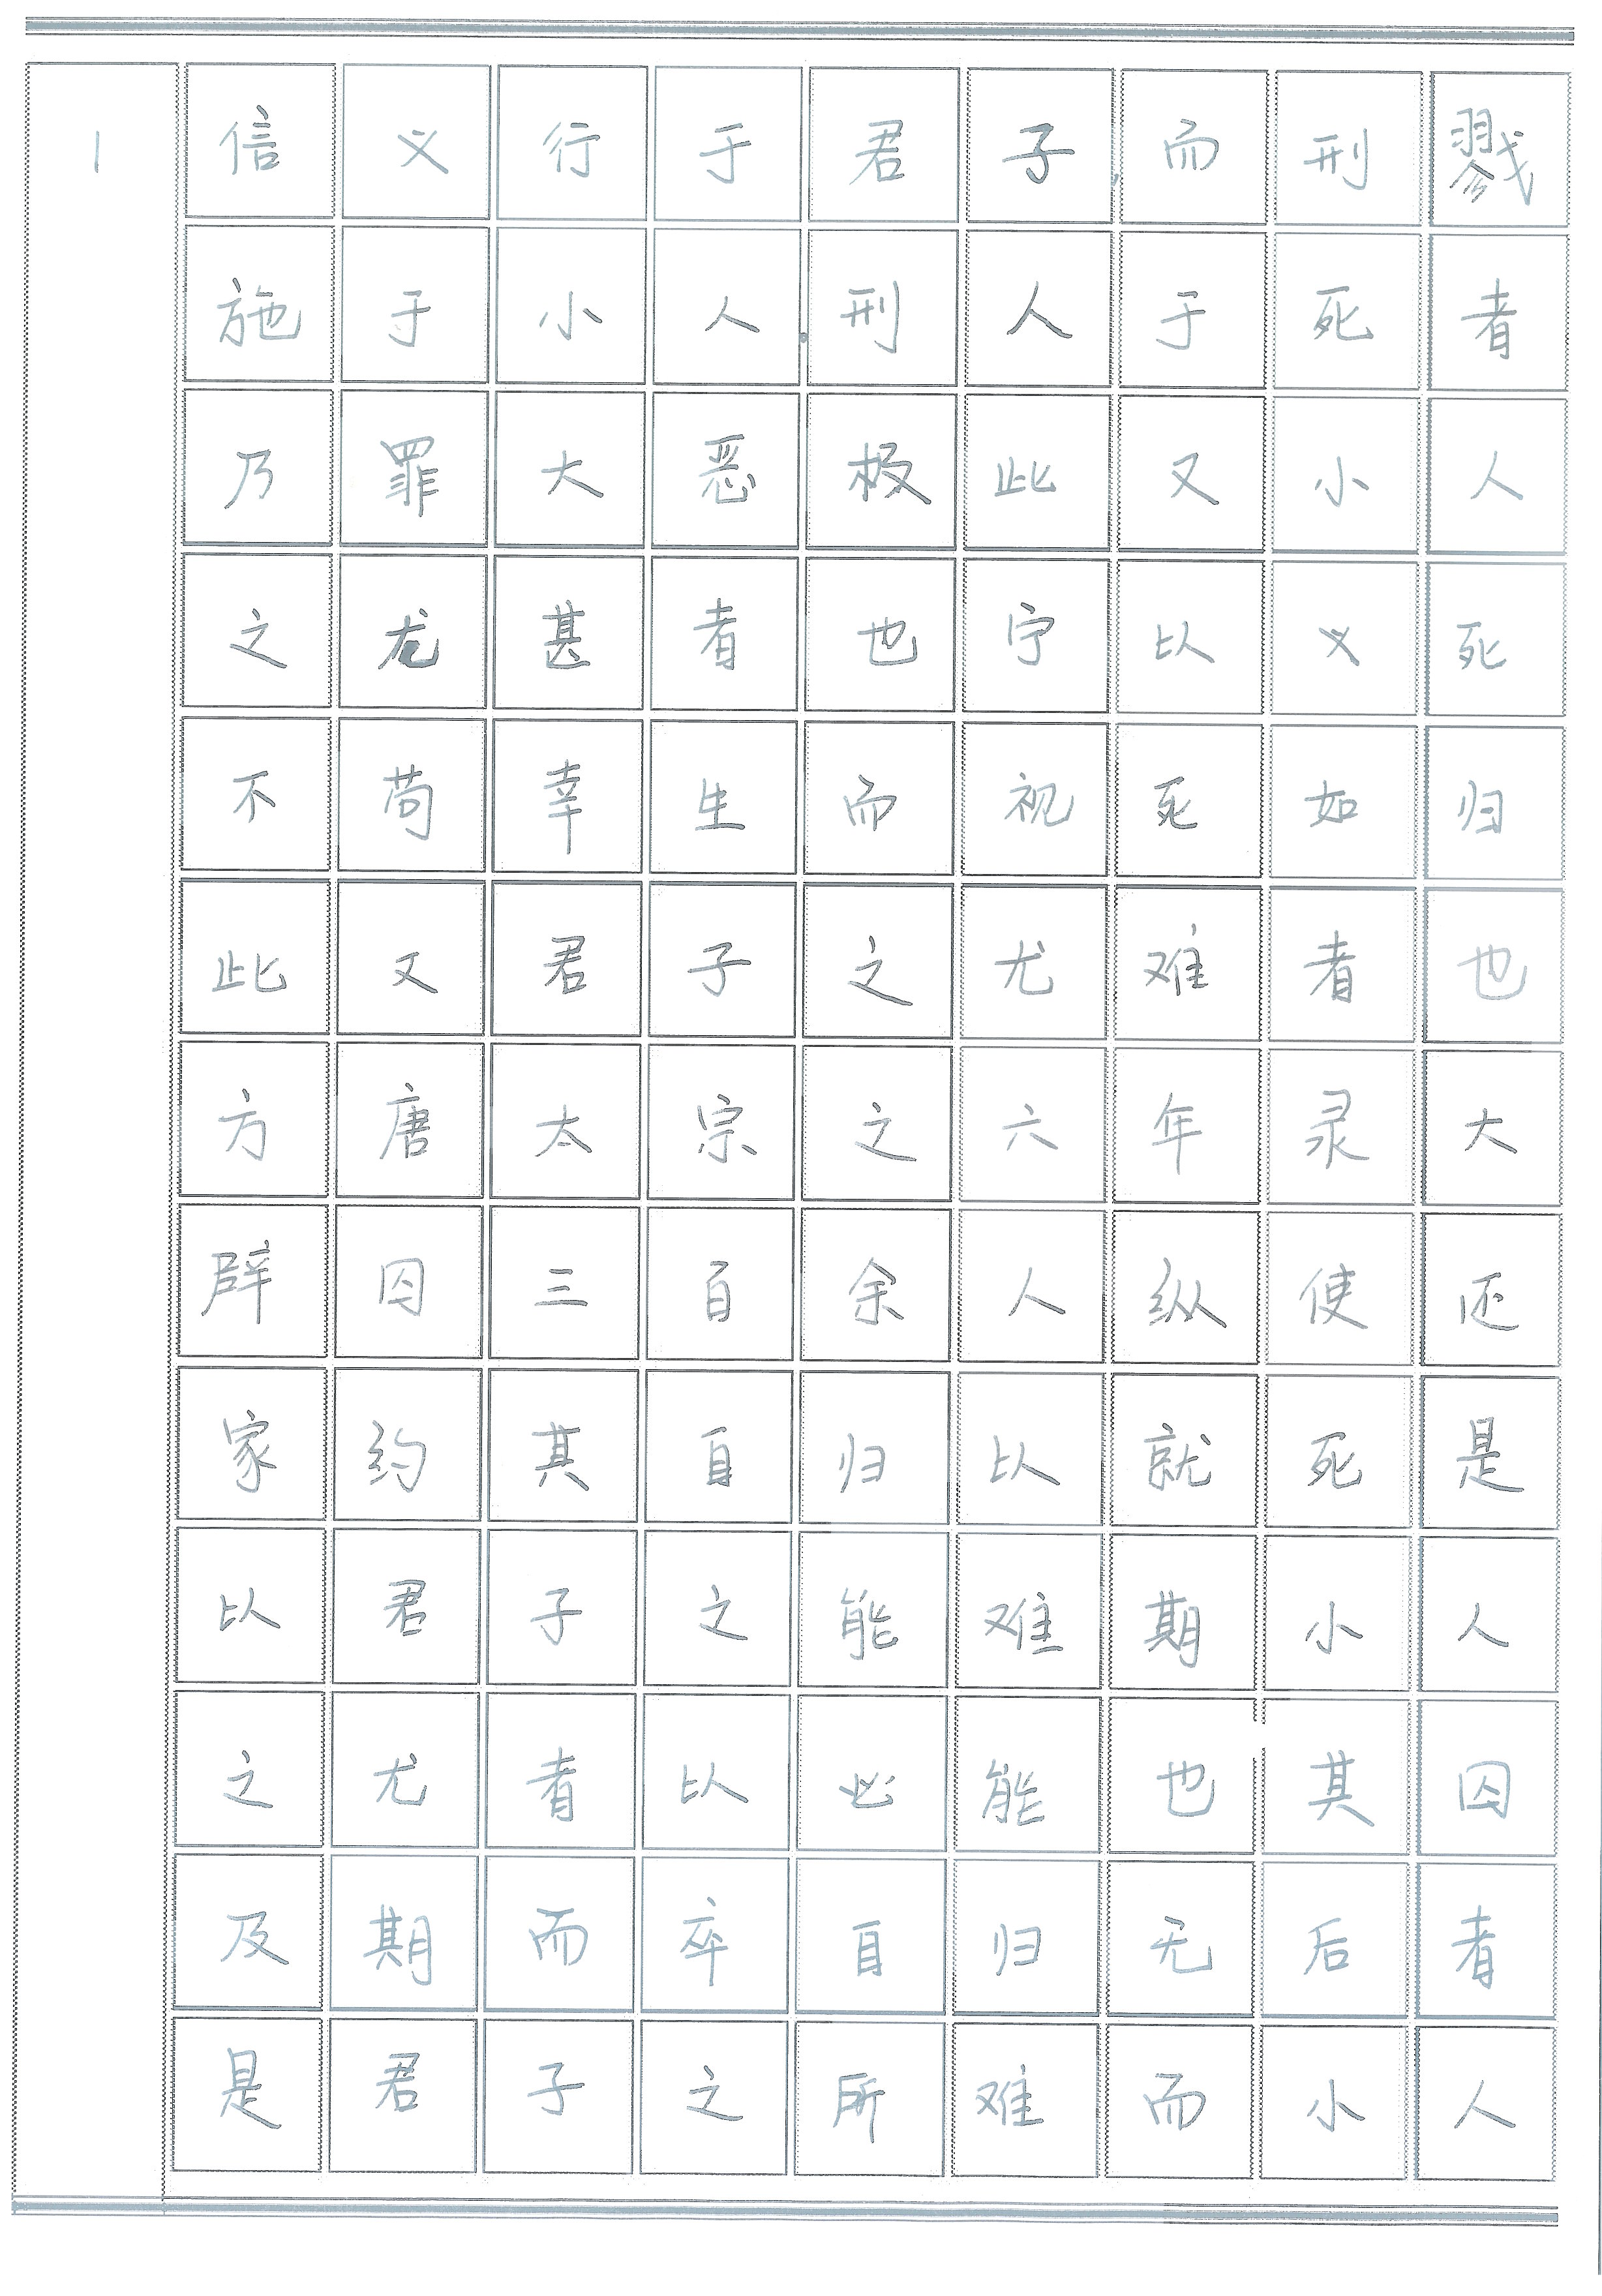 1
信义行于君子,而刑戮
施于小人。刑人于死者
乃罪大恶极此又小人
之尤甚者也宁以义死
不苟幸生而视死如归
此又君子之尤难者也
方唐太宗之六年录大
辟囚三百余人纵使还
家约其自归以就死是
以君子之能难期小人
之尤者以必能也其囚
及期而卒自归无后者
是君子之所难而小人